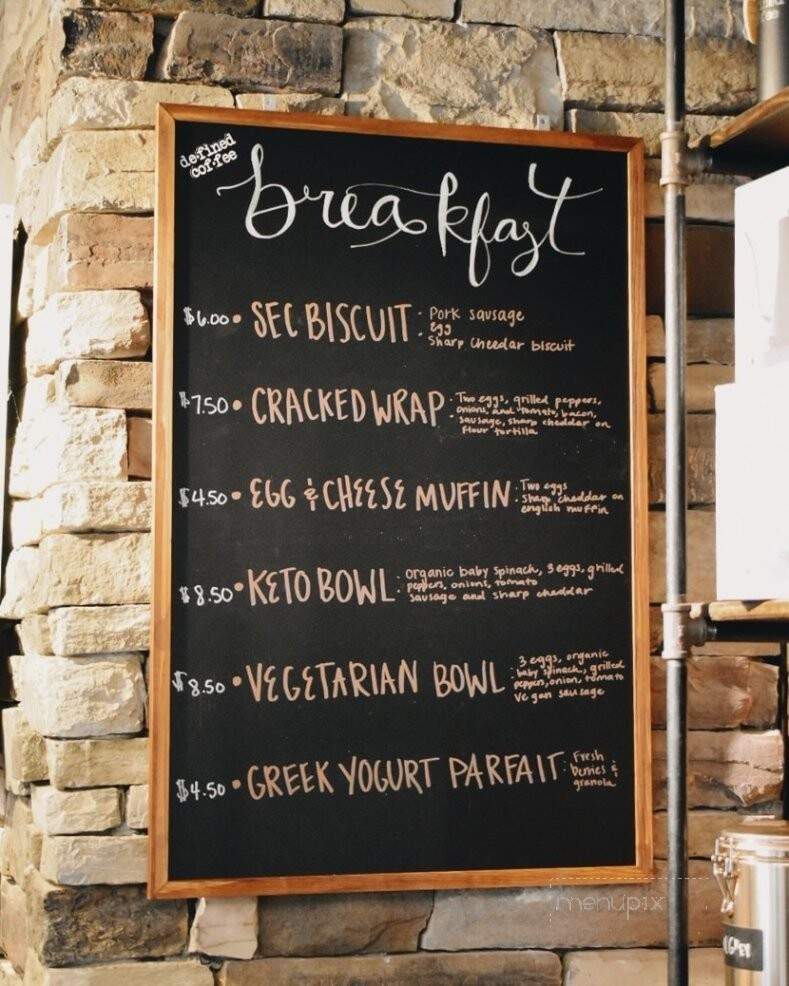 defined
coffee
breakfast
$6.00 • SEC BISCUIT : Pork sausage
egg
Sharp Cheedar biscuit
$7.50 • CRACKED WRAP : Two eggs, grilled peppers,
onions, and tomato, bacon,
sausage, sharp cheddar on
flour tortilla
$4.50 • EGG & CHEESE MUFFIN : Two eggs
Sharp cheddar on
english muffin
$8.50 • KETO BOWL : organic baby spinach, 3 eggs, grilled
peppers, onions, tomato
sausage and sharp cheddar
$8.50 • VEGETARIAN BOWL : 3 eggs, organic
baby spinach, grilled
peppers, onion, tomato
vegan sausage
$4.50 • GREEK YOGURT PARFAIT : Fresh
berries &
granola
menupix